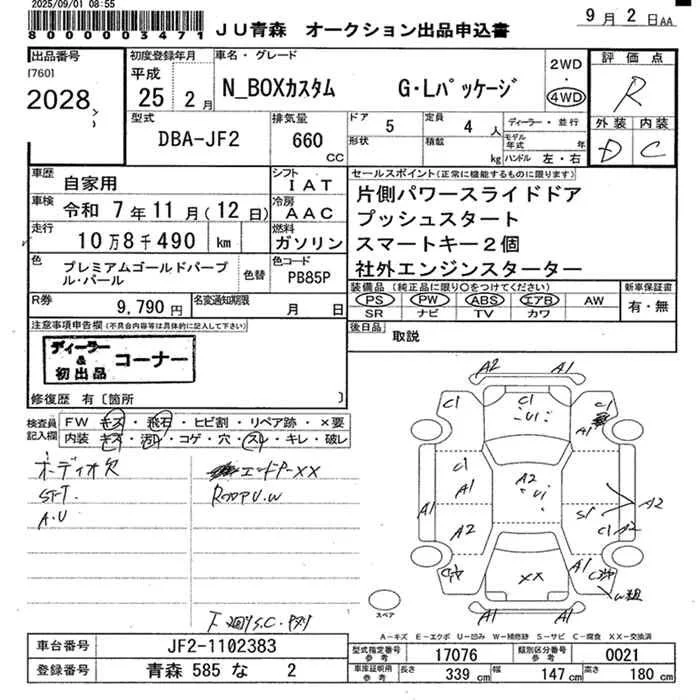 2025/09/01 08:55
8000003471
JU青森 オークション出品申込書
9月2日AA
出品番号
[760]
2028
初度登録年月
平成
25 2月
車名・グレード
N_BOXカスタム G・Lパッケージ
2WD
・
4WD
評価点
R
型式
DBA-JF2
排気量
660
CC
ドア 5
形状
定員 4 人
積載 kg
ディーラー・並行
モデル年式 年
ハンドル 左・右
外装 内装
D C
車歴 自家用
シフト IAT
車検 令和 7年11月(12日)
冷房 AAC
走行 10万8千490 km
燃料 ガソリン
セールスポイント(正常に機能するものに限ります)
片側パワースライドドア
プッシュスタート
スマートキー2個
社外エンジンスターター
色 プレミアムゴールドパープル・パール
色替
色コード PB85P
装備品(純正品に限り○をつけてください)
PS PW ABS エアB AW
SR ナビ TV カワ
新車保証書
有・無
R券 9,790円
名変通知期限 月 日
後日品 取説
注意事項申告欄(不具合内容等は具体的に記入して下さい)
ディーラー
&
初出品
コーナー
修復歴 有〔箇所 〕
検査員記入欄
FW キズ・飛石・ヒビ割・リペア跡・×要
内装 キズ・汚れ・コゲ・穴・スレ・キレ・破レ
オーディオ欠
ST-T
A.U
エンドP-XX
RフロアU.W
下廻りS.C・
A2 A1
C1 C1 C1
U1
A1
C1
A1
A2
U1
A1
A2
S1
A2
C1 A2
XX
A1
A1 A1
スペア
A-キズ E-エクボ U-凹み W-補修跡 S-サビ C-腐食 XX-交換済
車台番号 JF2-1102383
登録番号 青森 585 な 2
型式指定番号 参考 17076
類別区分番号 参考 0021
車庫証明用 参考 長さ 339 cm 幅 147 cm 高さ 180 cm